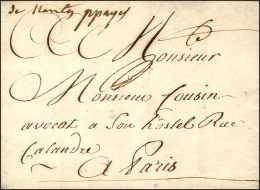 de Nantes ppayé
Monsieur
Monsieur Cousin
avocat a Son hostel Rue
Calandre
a Paris